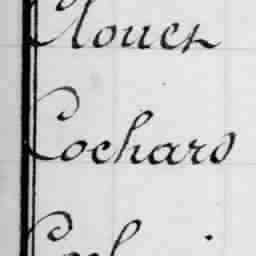 Clouet
Cochard